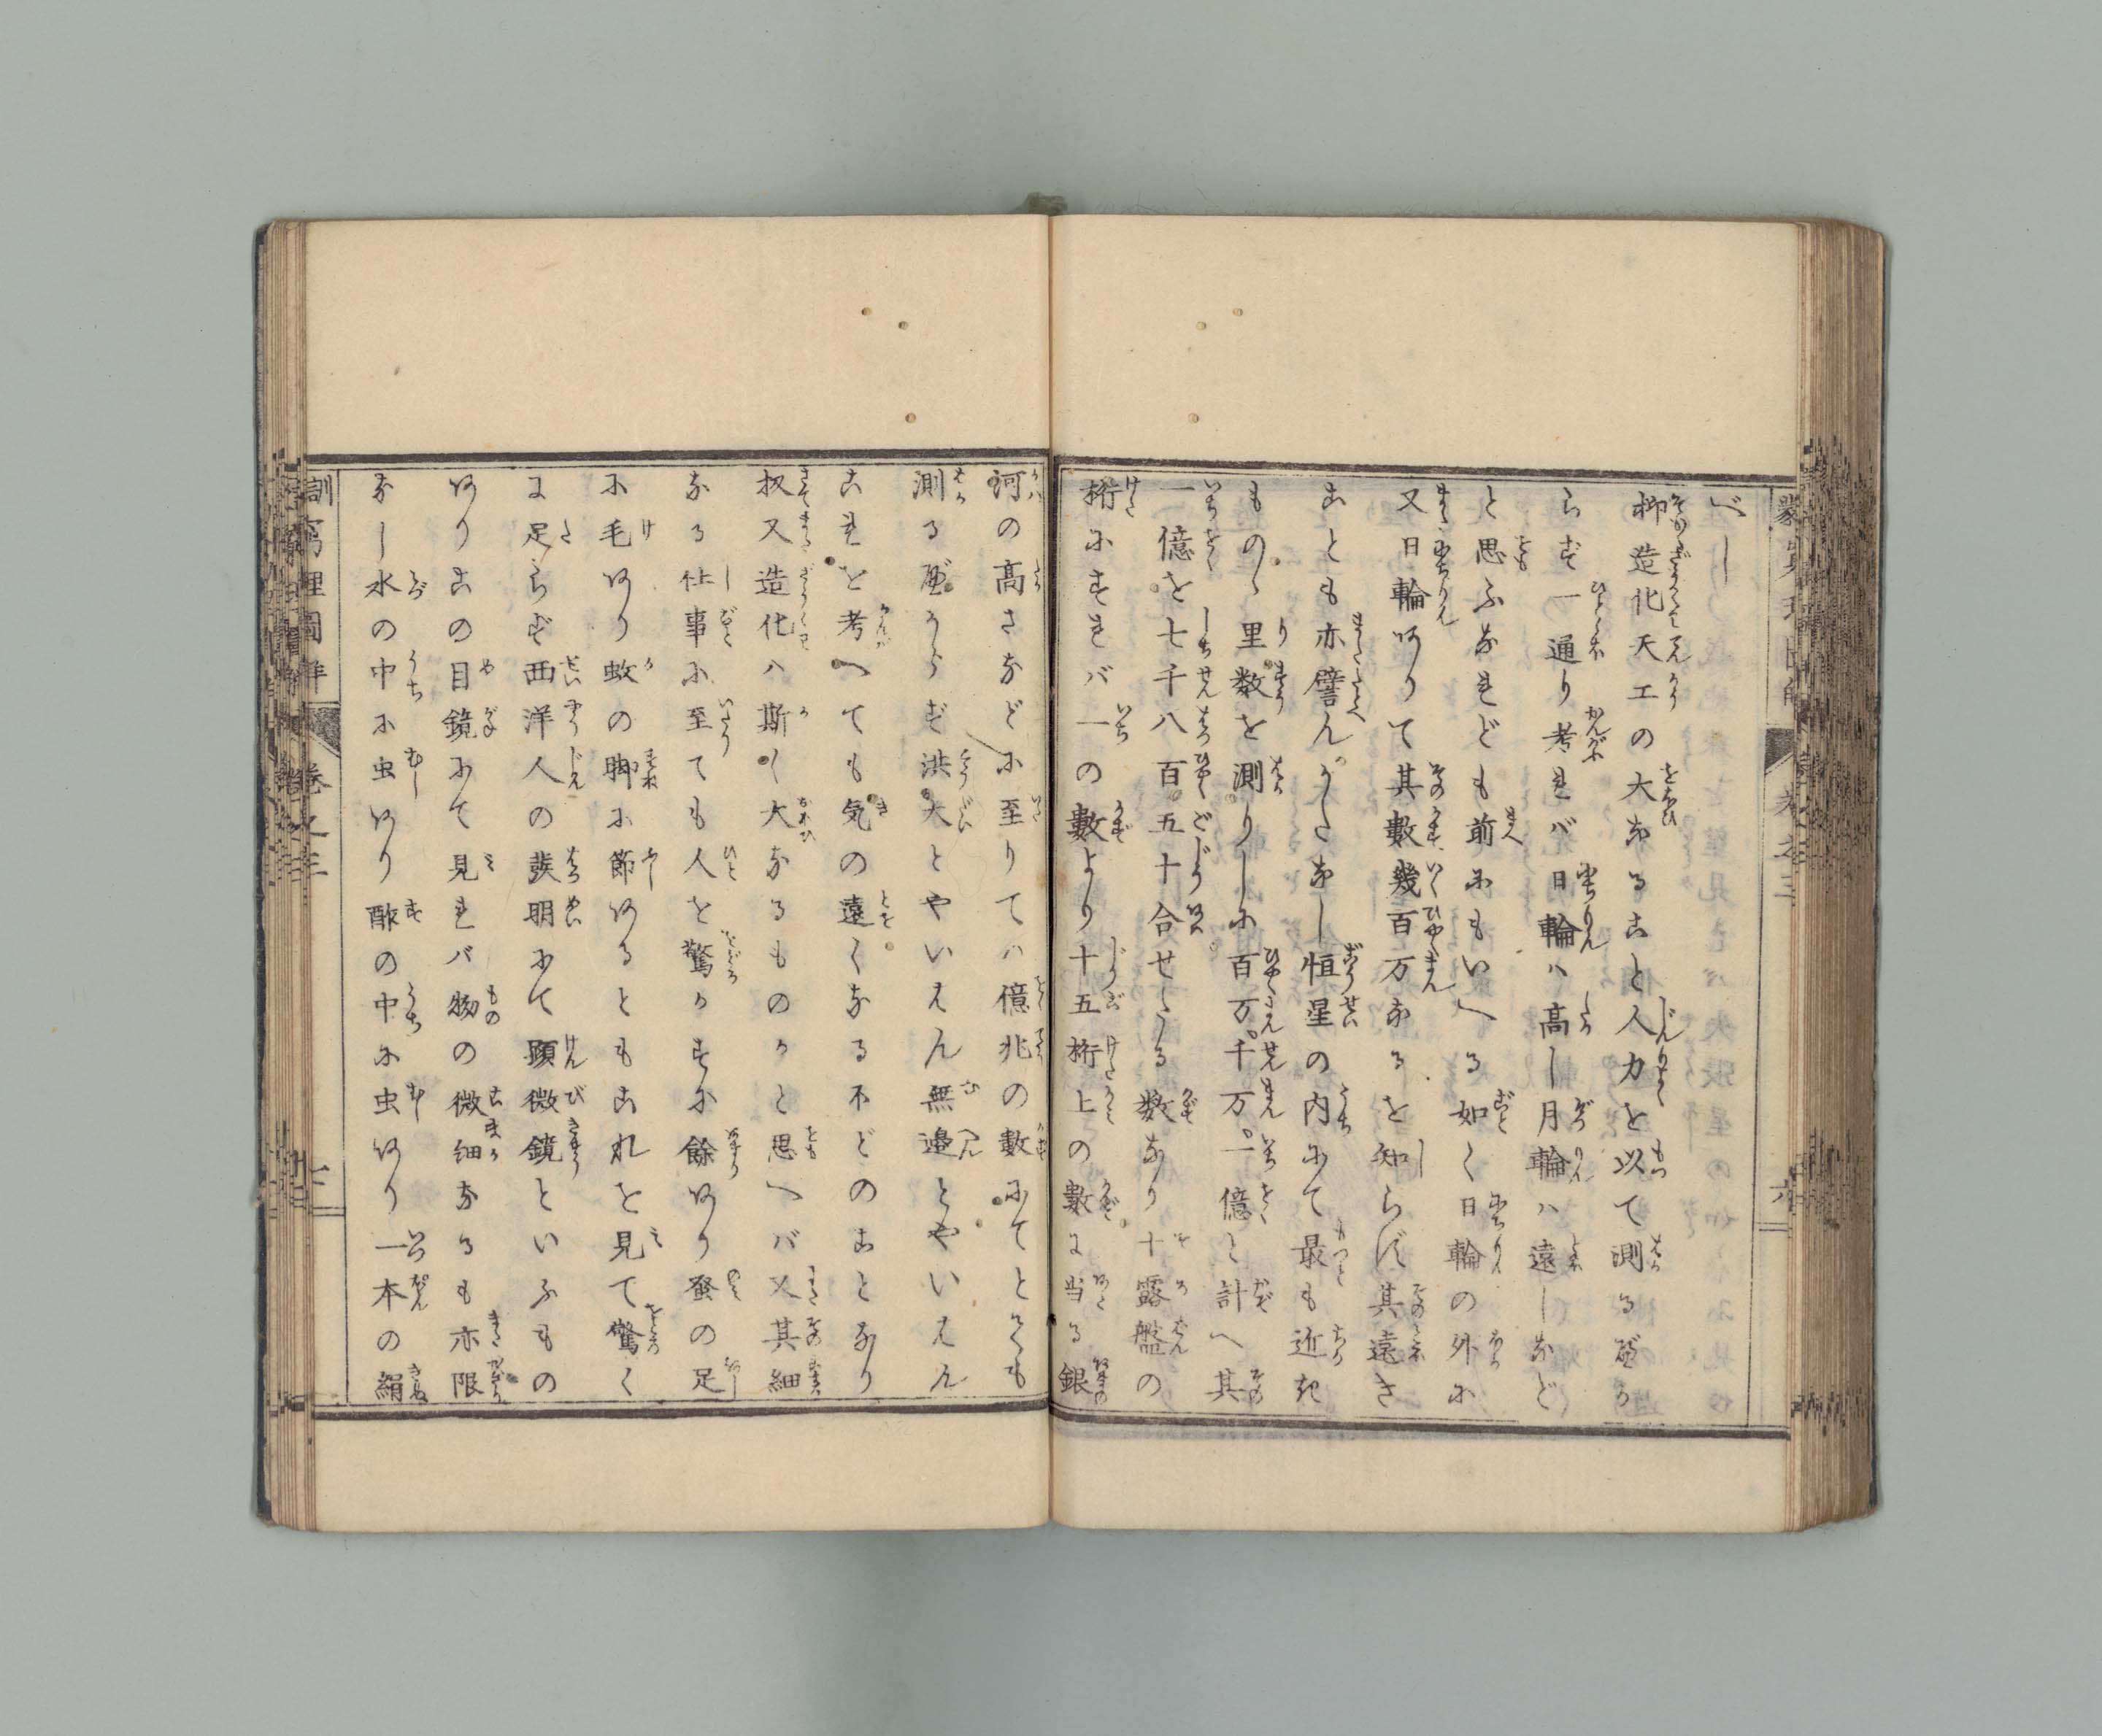 べし
抑造化天工の大なること人力を以て測るべか
らず一通り考れバ日輪ハ高し月輪ハ遠しなど
と思ふなれども前にもいへる如く日輪の外に
又日輪ありて其數幾百万なるを知らず其遠き
ことも亦譬んかたなし恒星の内にて最も近き
ものゝ里数を測りしに百万千万一億と計へ其
一億を七千八百五十合せたる数なり十露盤の
桁にすれバ一の數より十五桁上の數に当る銀
河の高さなどに至りてハ億兆の數にてとても
測るべからず洪大とやいはん無邊とやいはん
これを考へても気の遠くなるほどのことなり
扨又造化ハ斯く大なるものかと思へバ又其細
なる仕事に至ても人を驚かすに餘あり蚤の足
に毛あり蚊の脚に節あるともこれを見て驚く
に足らず西洋人の發明にて顕微鏡といふもの
ありこの目鏡にて見れバ物の微細なるも亦限
なし水の中に虫あり酢の中に虫あり一本の絹
訓窮理圖解 卷之三